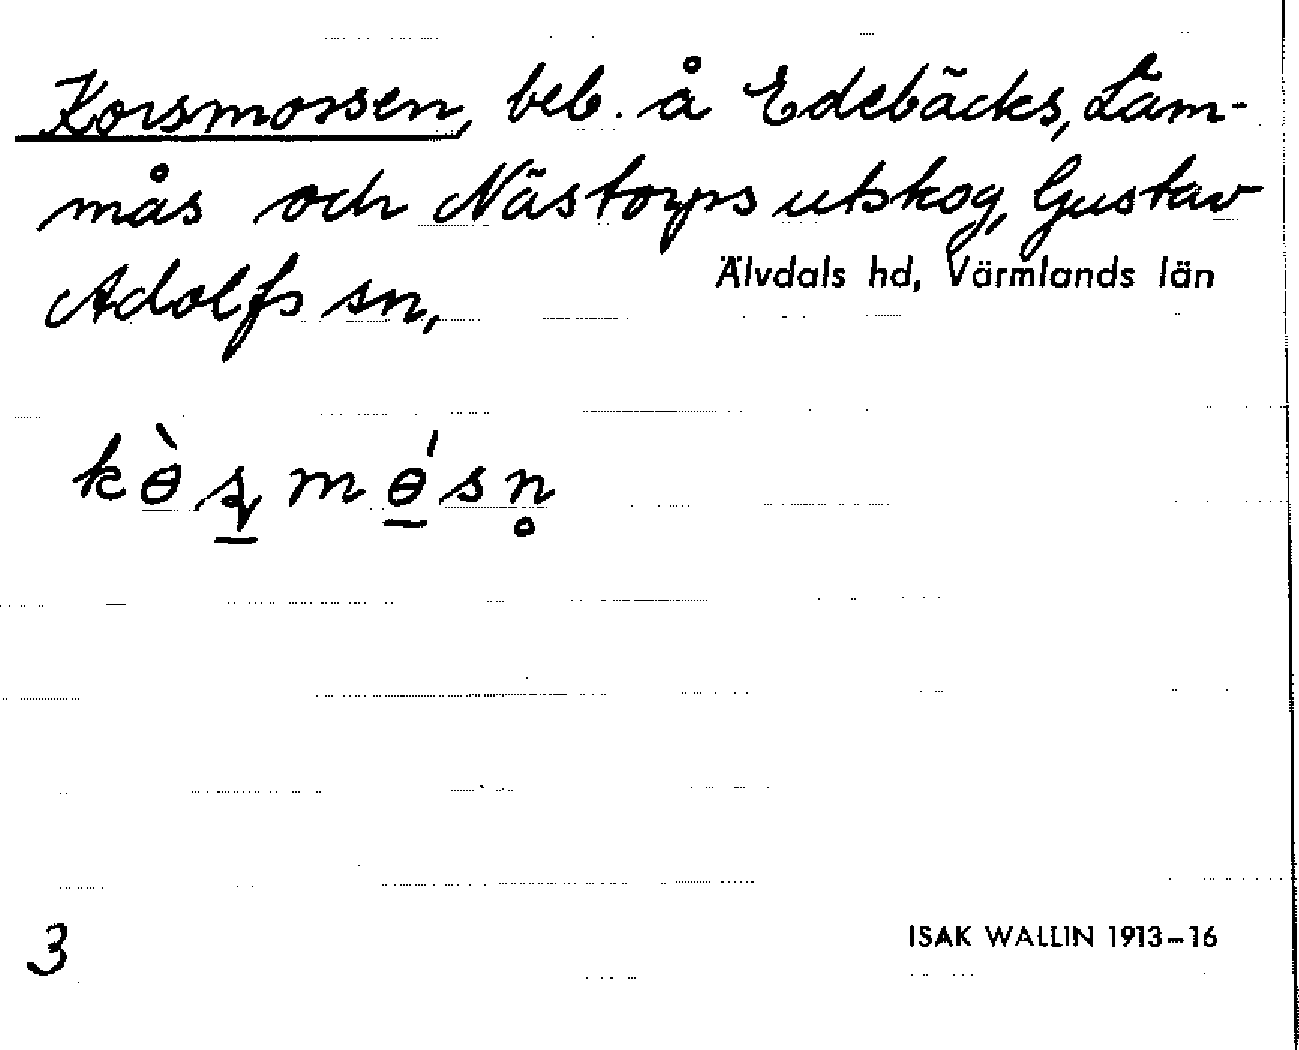 Korsmossen, beb. å Edebäcks, Läm-
mås och Nästorps utskog, Gustav
Adolfs sn,
Älvdals hd, Värmlands län
kɵ̀ʂmɵ́sn̥
3
ISAK WALLIN 1913–16